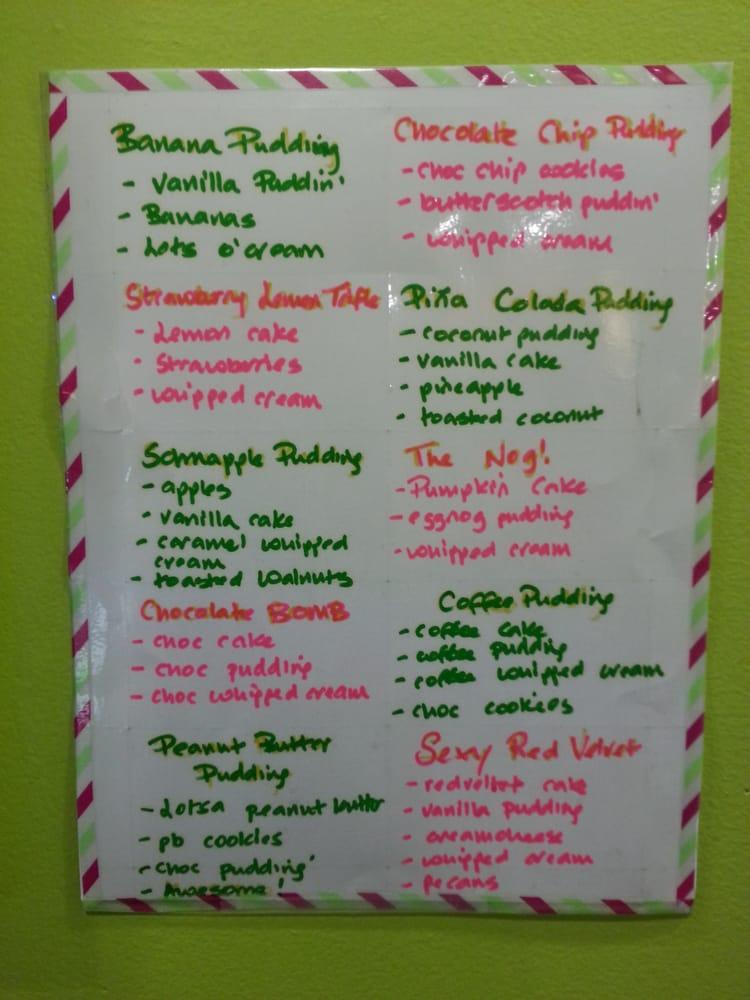 Banana Pudding
- Vanilla Puddin'
- Bananas
- Lots o' cream
Chocolate Chip Pudding
- choc chip cookies
- butterscotch puddin'
- whipped cream
Strawberry Lemon Trifle
- Lemon cake
- Strawberries
- whipped cream
Piña Colada Pudding
- coconut pudding
- vanilla cake
- pineapple
- toasted coconut
Schnapple Pudding
- apples
- vanilla cake
- caramel whipped
cream
- toasted walnuts
The Nog!
- Pumpkin Cake
- eggnog pudding
- whipped cream
Chocolate BOMB
- choc cake
- choc pudding
- choc whipped cream
Coffee Pudding
- coffee cake
- coffee pudding
- coffee whipped cream
- choc cookies
Peanut Butter
Pudding
- Lotsa peanut butter
- pb cookies
- choc pudding'
- Awesome!
Sexy Red Velvet
- redvelvet cake
- vanilla pudding
- creamcheese
- whipped cream
- pecans